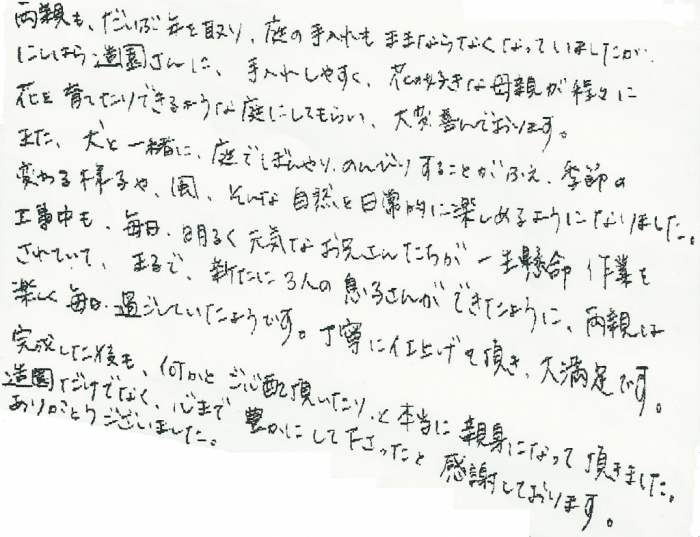 両親も、だいぶ年を取り、庭の手入れもままならなくなっていましたが、
にしはら造園さんに、手入れしやすく、花が好きな母親が様々に
花を育てたりできるような庭にしてもらい、大変喜んでおります。
また、犬と一緒に、庭でぼんやり、のんびりすることがふえ、季節の
変わる様子や、風、そんな自然を日常的に楽しめるようになりました。
工事中も、毎日、明るく元気なお兄さんたちが一生懸命作業を
されていて、まるで、新たに3人の息子さんができたように、両親は
楽しく毎日過ごしていたようです。丁寧に仕上げて頂き、大満足です。
完成した後も、何かとご心配頂いたり、と本当に親身になって頂きました。
造園だけでなく、心まで豊かにして下さったと感謝しております。
ありがとうございました。